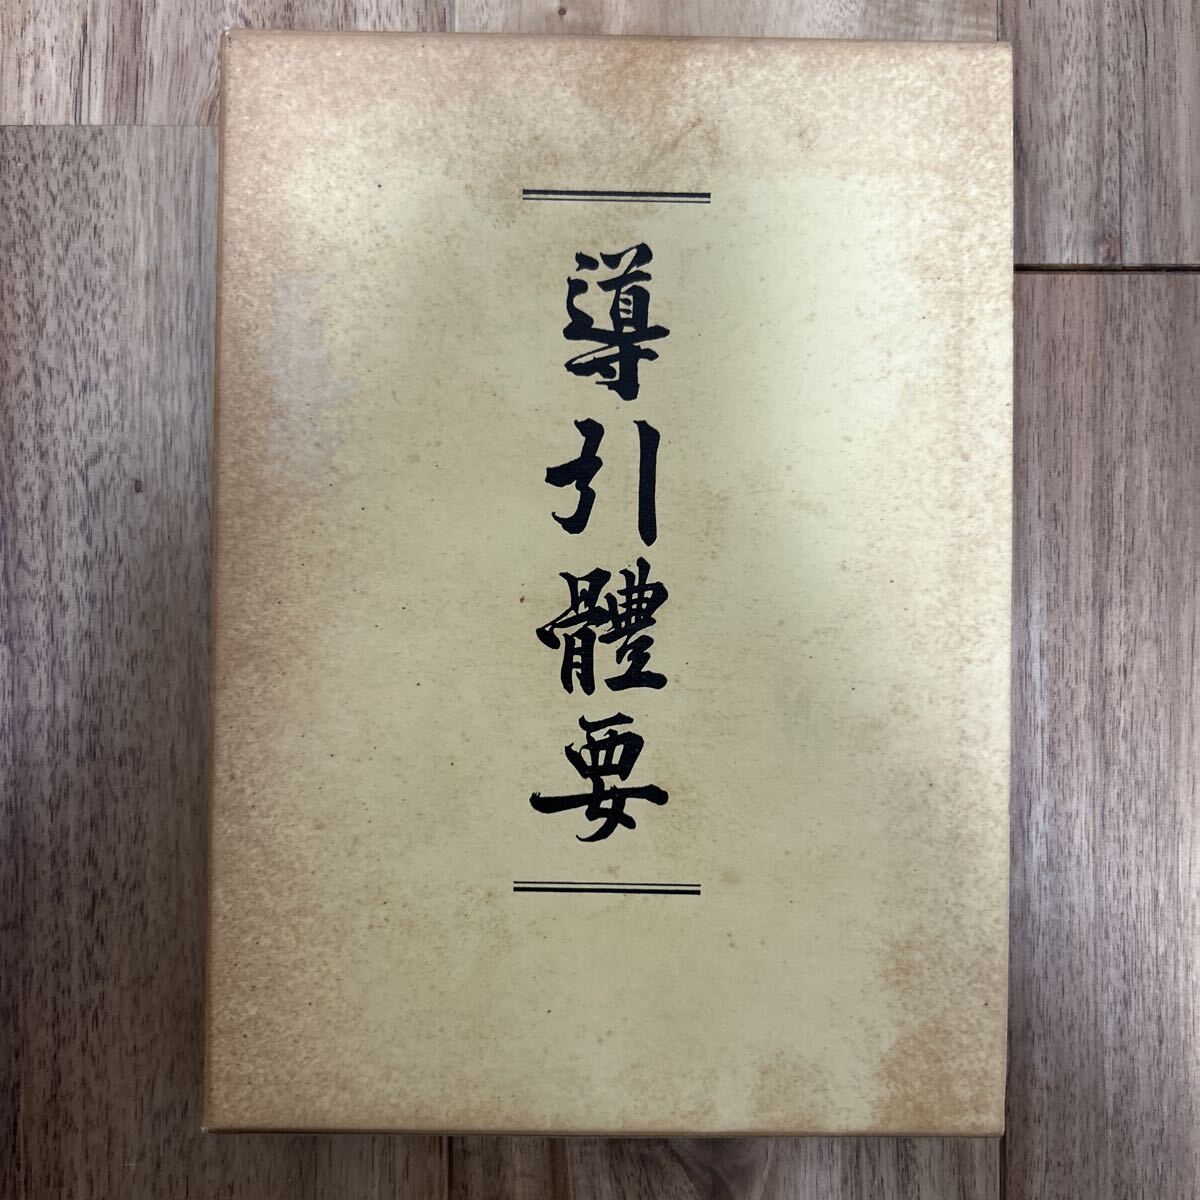 導引體要